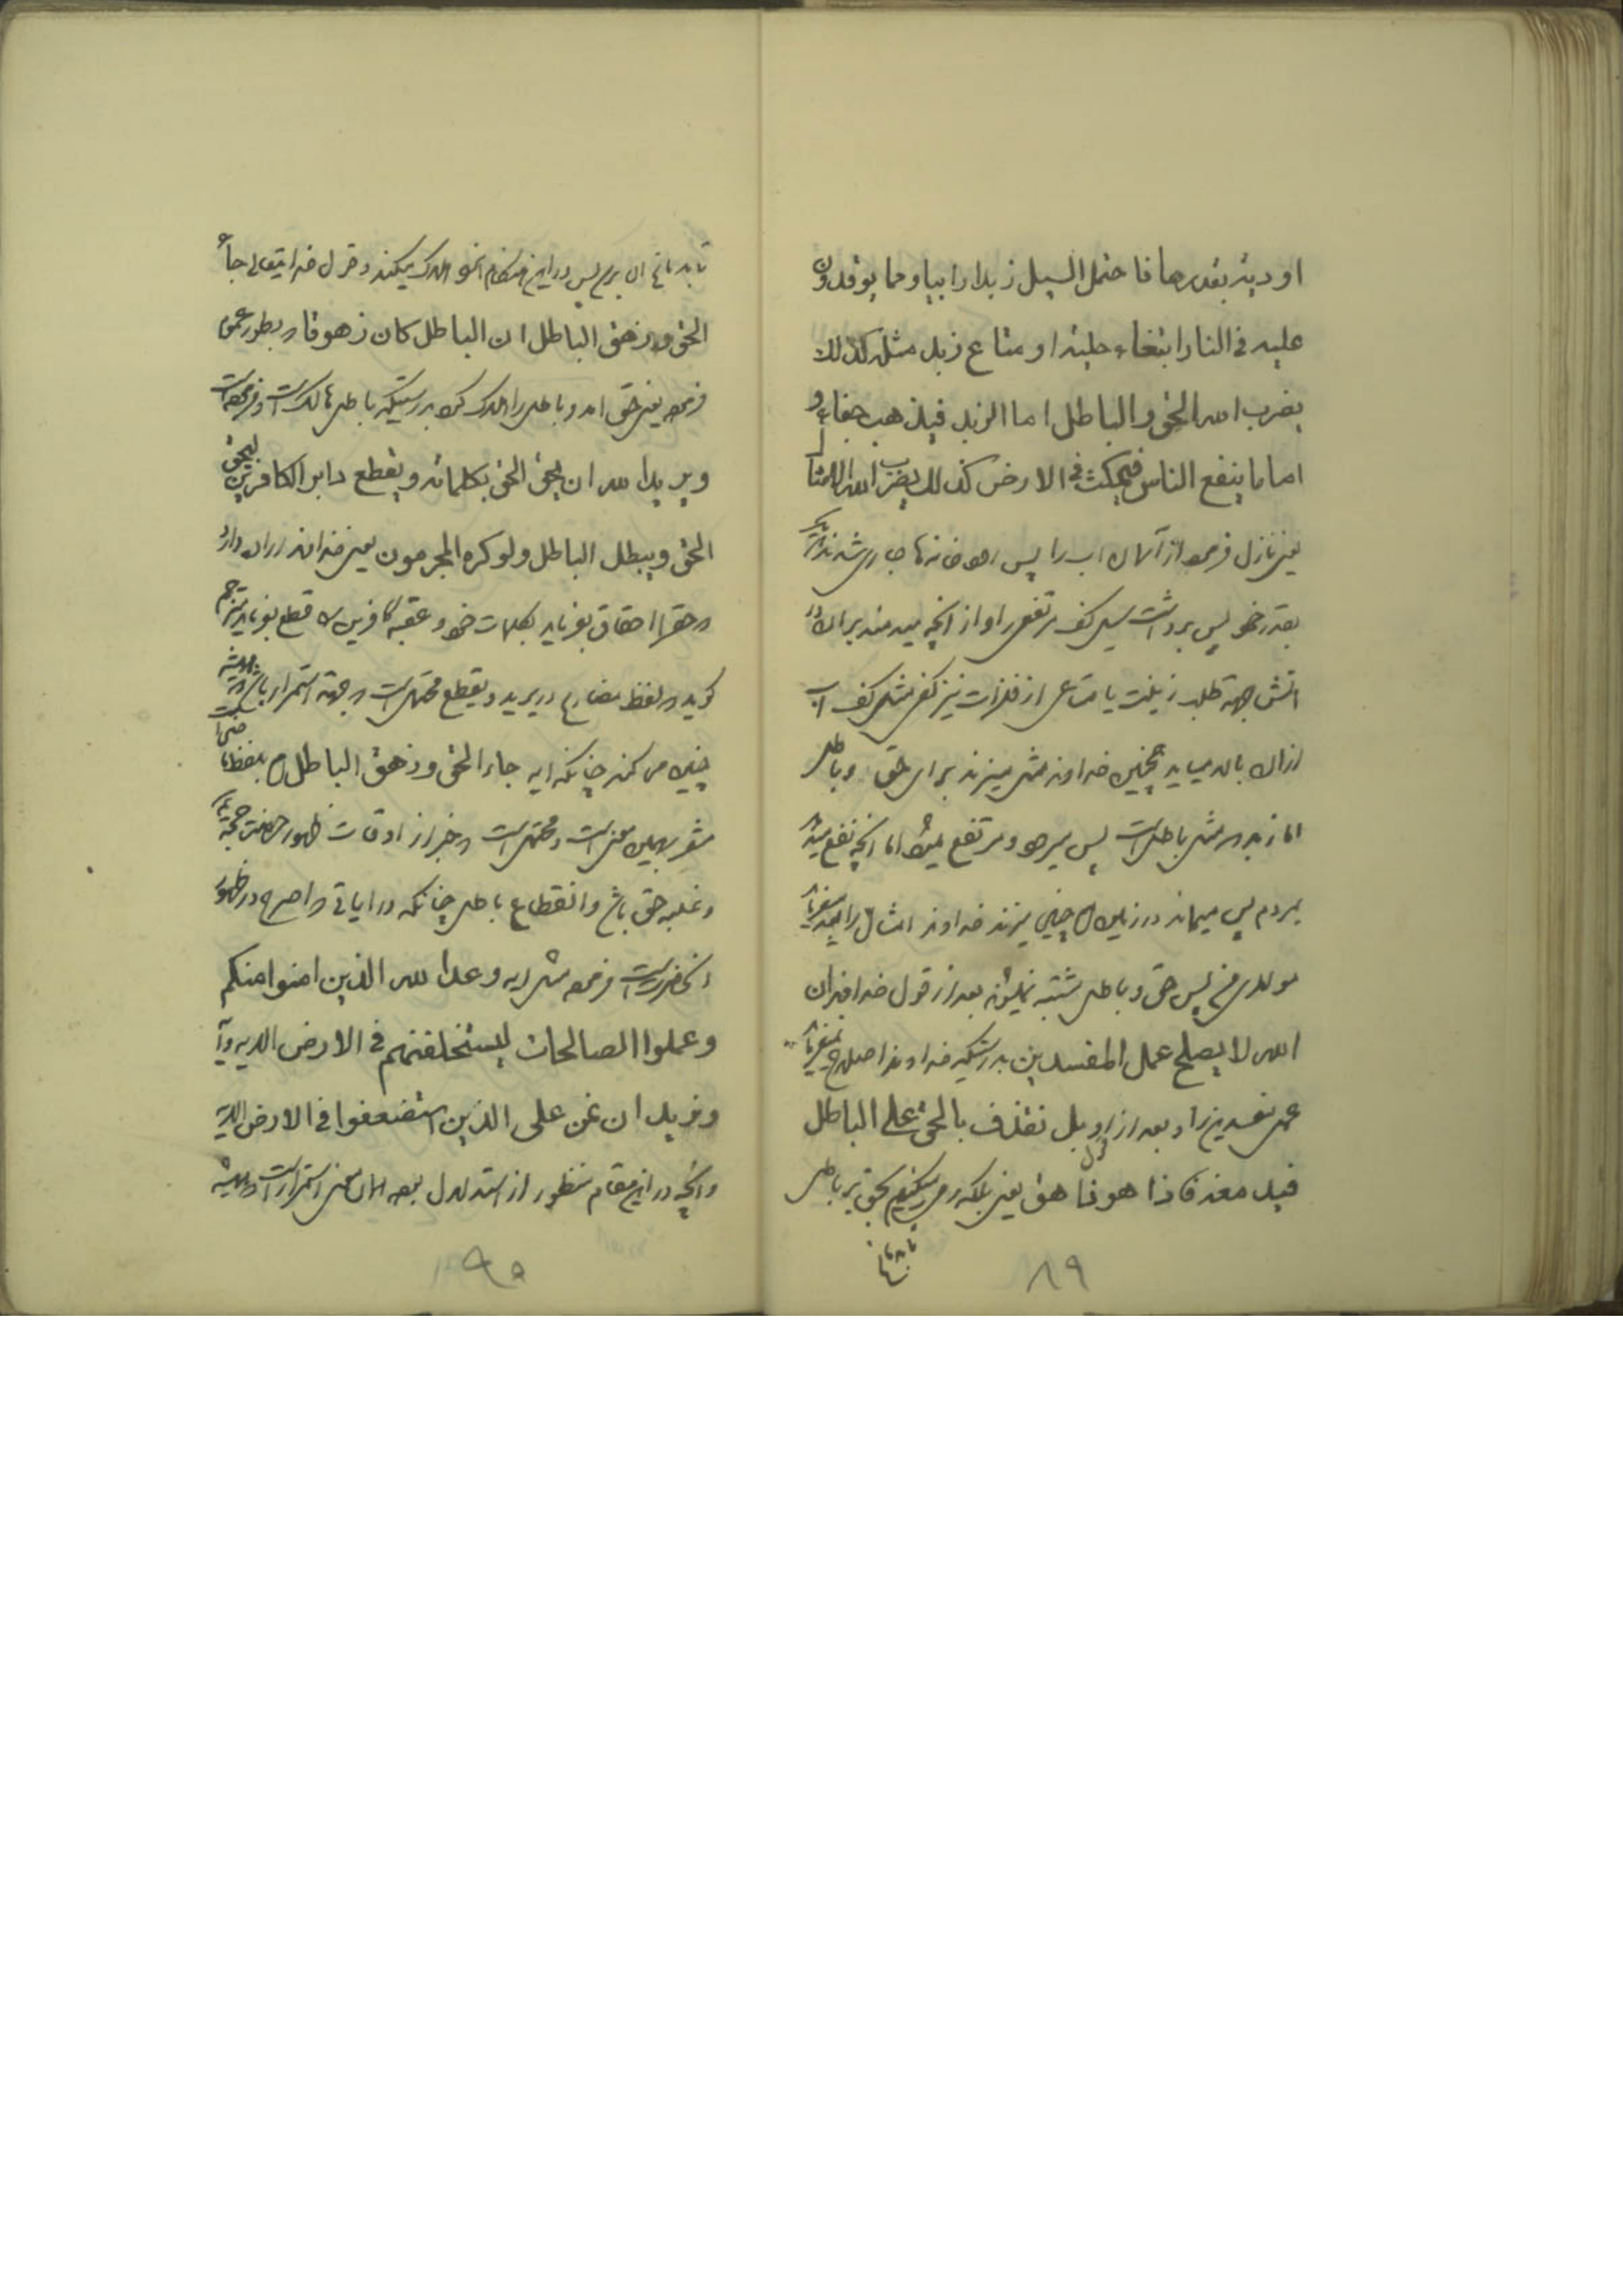 اودیة بقدرها فاحتمل السیل زبدا رابیا ومما یوقدون
علیه فی النار ابتغاء حلیة او متاع زبد مثله کذلک
یضرب الله الحق والباطل اما الزبد فیذهب جفاء و
اما ما ینفع الناس فیمکث فی الارض کذلک یضرب الله الامثال
یعنی نازل فرموده از آسمان آب را پس رودخانه‌ها جاری شدند
بقدر خود پس برداشت سیل کف مرتفعی را و از آنچه میدمند بر آن در
اتش بجهة طلب زینت یا متاعی از فلزات نیز کفی مثل کف آب
از ان بالا میاید همچنین خداوند مثل میزند برای حق و باطل
اما زبد که مثل باطلست پس میرود و مرتفع میشود اما آنچه نفع میدهد
بمردم پس میماند در زمین چنین میزند خداوند امثال را
پس حق و باطل مشتبه نمیشوند بعد از قول خدا فان
الله لا یصلح عمل المفسدین بدرستیکه خداوند اصلاح نمیفرماید
عمل مفسدین را و بعد از قول او بل نقذف بالحق علی الباطل
فیدمغه فاذا هو زاهق یعنی بلکه می‌افکنیم حق بر باطل
۸۹
پس در این هنگام او هلاک میکند و قول خدایتعالی جاء
الحق وزهق الباطل ان الباطل کان زهوقا که بطور عموم
فرموده یعنی حق امد و باطل را هلاک کرد بدرستیکه باطل هالک است و فرموده است
ویرید الله ان یحق الحق بکلماته ویقطع دابر الکافرین لیحق
الحق ویبطل الباطل ولو کره المجرمون یعنی خداوند اراده دارد
که حق را احقاق بفرماید بکلمات خود و عقبه کافرین را قطع بفرماید مترجم
گوید که لفظ مضارع در یرید و یقطع محتمل است که بجهة استمرار باشد که همیشه
چنین می کند چنانکه ایه جاء الحق وزهق الباطل بلفظ
مشعر بهمین معنی است و محتمل است که خبر از اوقات ظهور حضرت حجة
و غلبه حق باشد و انقطاع باطل چنانکه در ایاتی که اصرح در ظهور
آنحضرت است فرموده مثل ایه وعد الله الذین امنوا منکم
وعملوا الصالحات لیستخلفنهم فی الارض الایه و آیه
ونرید ان نمن علی الذین استضعفوا فی الارض الایة
و آنچه در این مقام منظور از استدلال بوده همان معنی استمرار است که همیشه
۹۰